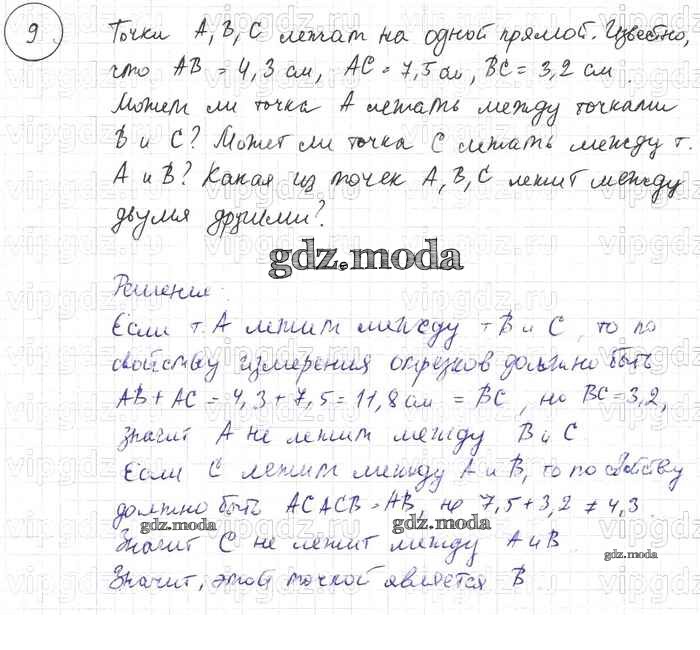 9
Точки A, B, C лежат на одной прямой. Известно,
что AB = 4,3 см, AC = 7,5 см, BC = 3,2 см.
Может ли точка A лежать между точками
B и C? Может ли точка C лежать между т.
A и B? Какая из точек A, B, C лежит между
двумя другими?
gdz.moda
Решение:
Если т. A лежит между т B и C, то по
свойству измерения отрезков должно быть
AB + AC = 4,3 + 7,5 = 11,8 см = BC, но BC = 3,2,
значит A не лежит между B и C
Если C лежит между A и B, то по свойству
должно быть ACACB = AB, но 7,5 + 3,2 ≠ 4,3.
gdz.moda gdz.moda
Значит C не лежит между A и B
gdz.moda
Значит, этой точкой является B